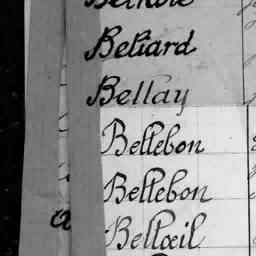 Beliard
Bellay
Bellebon
Bellebon
Bellœil